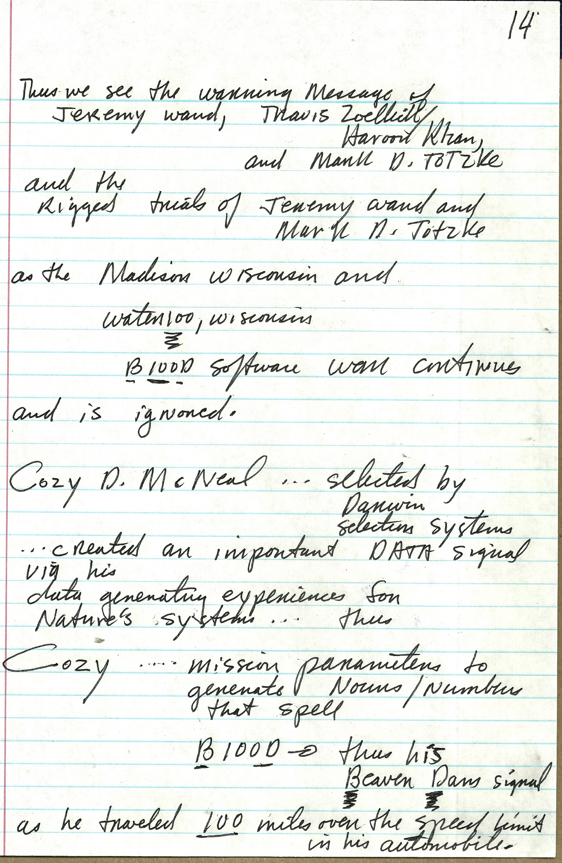 14
Thus we see the warning Message of
Jeremy wand, Travis Zoellick,
Haroon Khan,
and Mark D. TOTZKE
and the
Rigged trials of Jeremy wand and
Mark D. Totzke
as the Madison wisconsin and
water100, wisconsin
B100D software war continues
and is ignored.
Cozy D. McNeal ... selected by
Darwin
selection systems
...created an important DATA signal
via his
data generating experiences for
Nature's systems ... thus
Cozy ..... mission parameters to
generate Nouns/Numbers
that spell
B100D → thus his
Beaver Dans signal
as he traveled 100 miles over the speed limit
in his automobile.